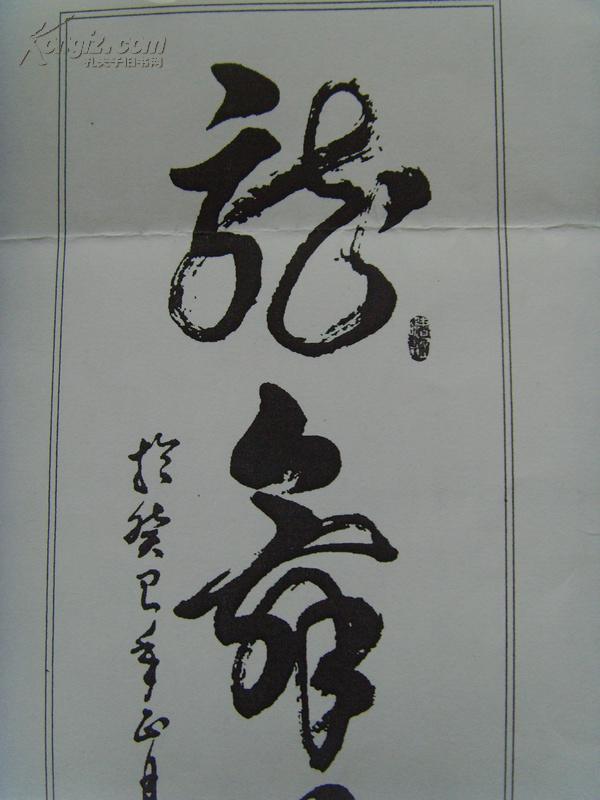 龍舞
於癸巳年正月
Kongfz.com
孔夫子旧书网